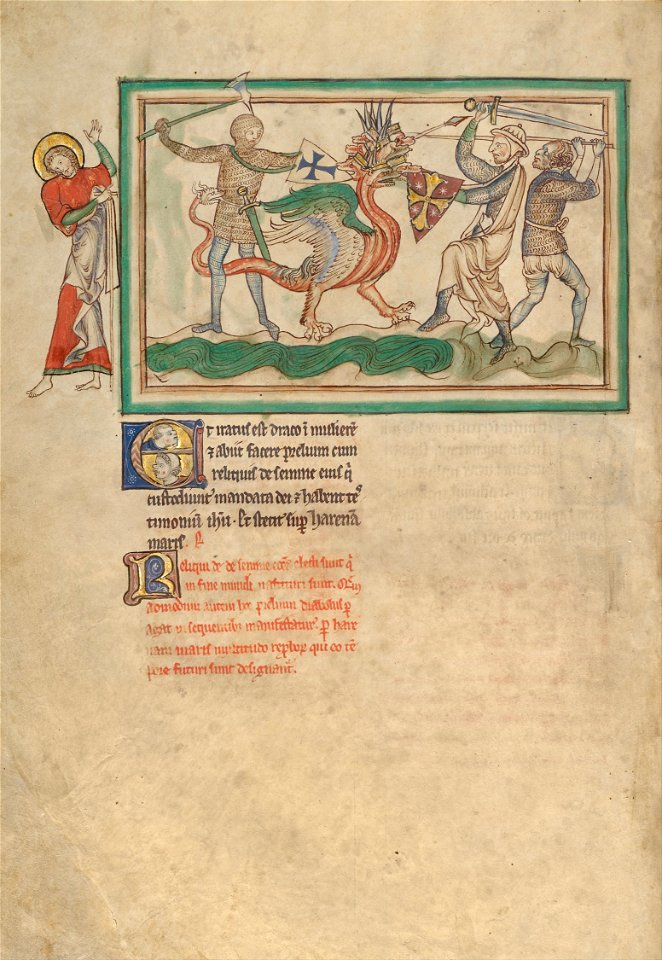 Et iratus est draco ī muliere
⁊ abiit facere prelium cum
reliquis de semine eius q̄
custodiunt mandata dei ⁊ habent tes
timonium ihū · Et stetit sup harenā
maris.
Reliqui de semine electi sunt q̄
in fine mundi nascituri sunt.
admodum autem hoc prelium diabolus p
agat ī sequentibꝫ manifestatur. p hare
nam maris multitudo reproboꝝ qui eo tē
pore futuri sunt designant̄.